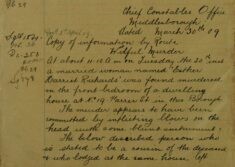 Chief Constables Office
Middlesborough
Dated March 30th 09
Copy of information by Route.
Wilful Murder
At about 11.10 am on Tuesday, the 30th inst
a married woman named Esther
Dorris Richards was found murdered
in the front bedroom of a dwelling
house at No 19 Parrer St in this Borough
The murder appears to have been
committed by inflicting blows on the
head with some blunt instrument.
The below described person who
is stated to be a cousin of the deceased
& who lodged at the same house, left